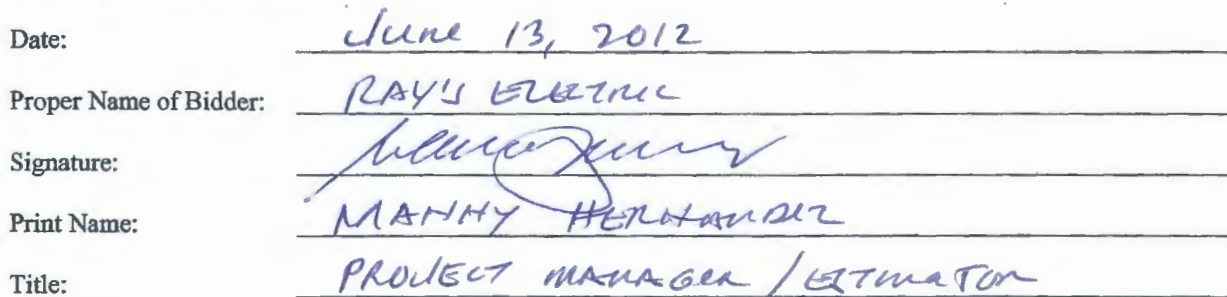 Date: June 13, 2012
Proper Name of Bidder: RAY'S ELECTRIC
Signature:
Print Name: MANNY HERNANDEZ
Title: PROJECT MANAGER / ESTIMATOR